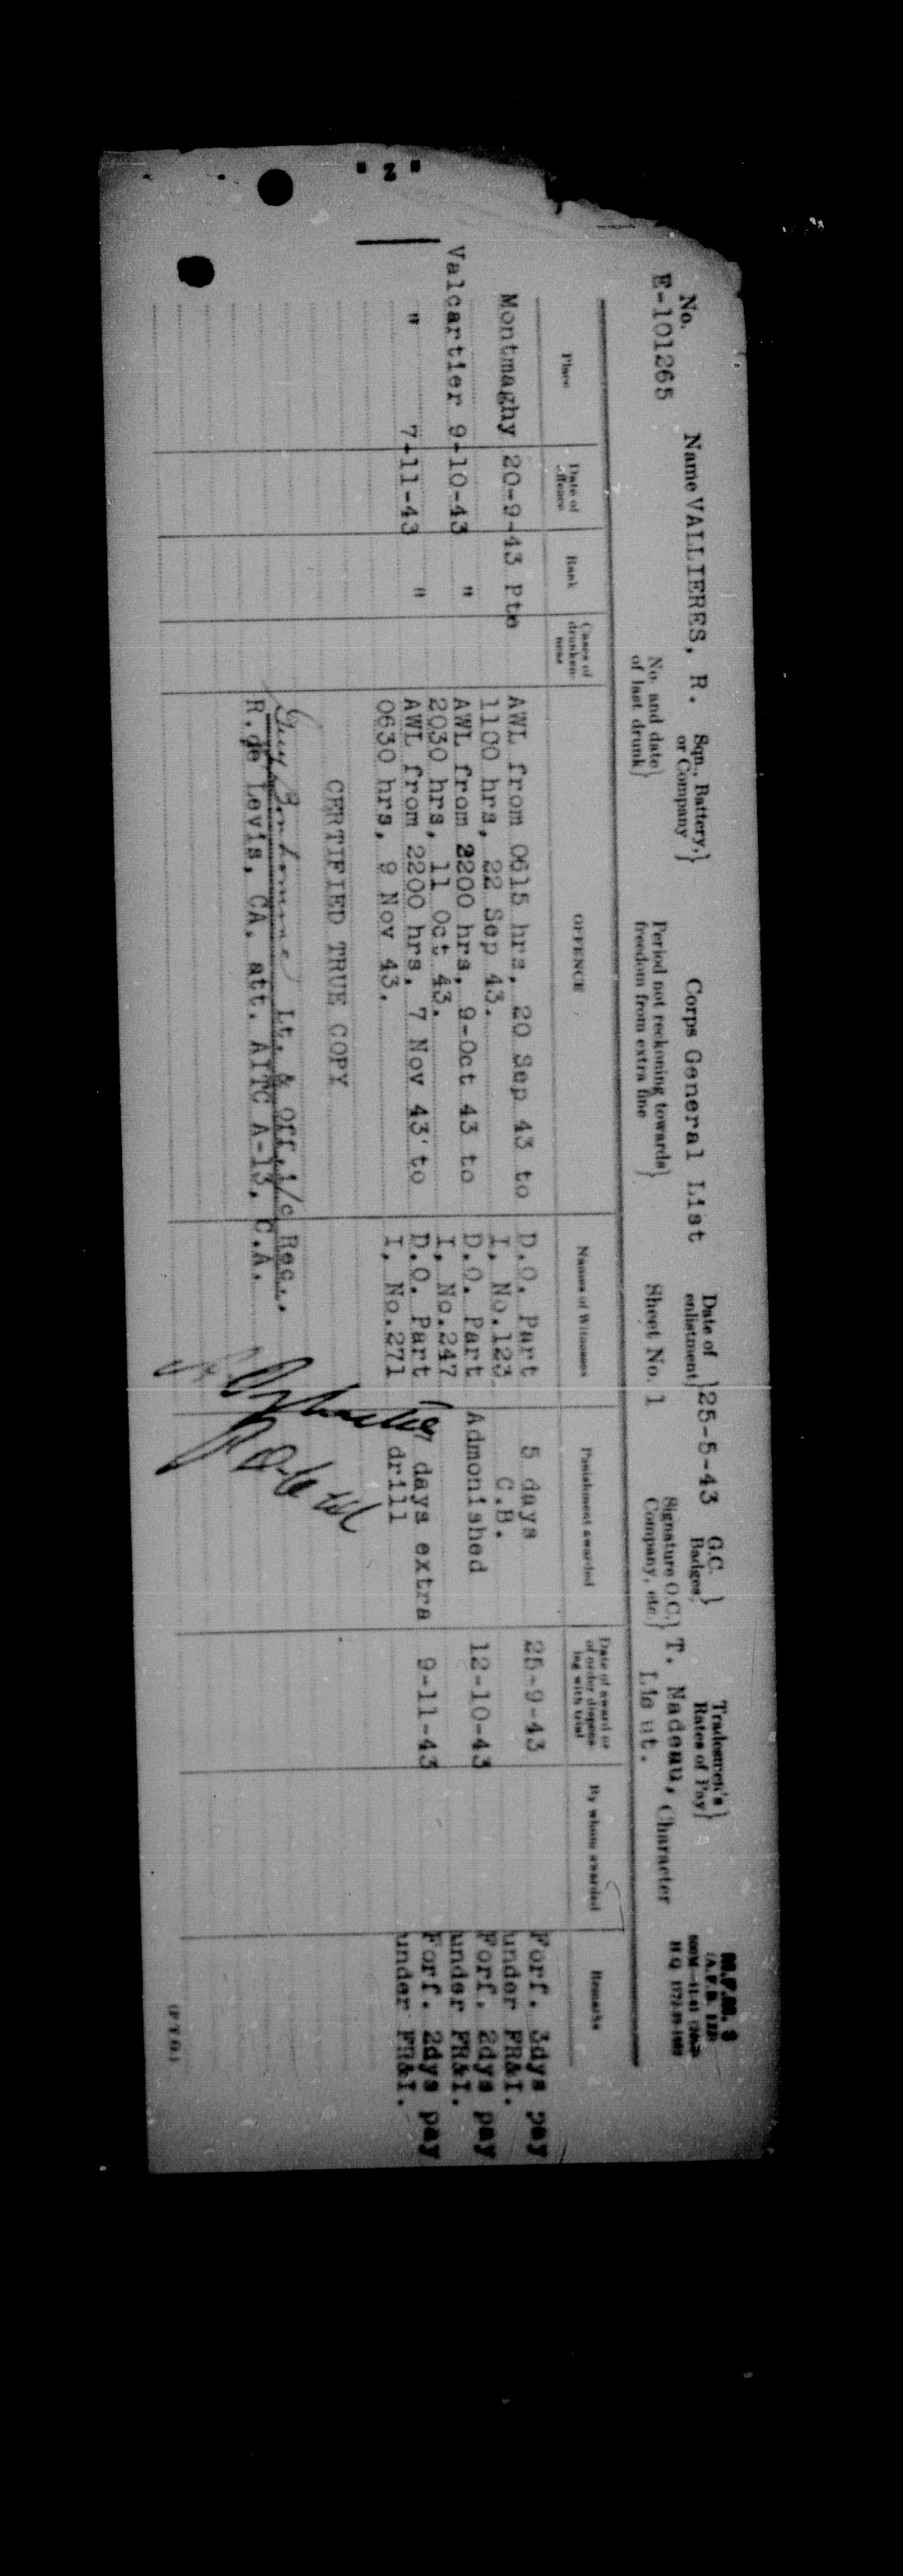 " Z "
M.F.M. 6
No. Name VALLIERES, R. Sqn., Battery, or Company} Corps General List Date of enlistment} 25-5-43 G.C. Badges} Tradesmen's Rates of Pay}
E-101265 No. and date of last drunk} Period not reckoning towards freedom from extra fine} Sheet No. 1 Signature O.C. Company, etc.} T. Nadeau, Lieut. Character
Place Date of offence Rank Cases of drunkenness OFFENCE Names of Witnesses Punishment awarded Date of award or of order dispensing with trial By whom awarded Remarks
Montmaghy 20-9-43 Pte AWL from 0615 hrs, 20 Sep 43 to D.O. Part 5 days 25-9-43 Forf. 3dys pay
1100 hrs, 22 Sep 43. I, No.123 C.B. under FR&I.
Valcartier 9-10-43 " AWL from 2200 hrs, 9-Oct 43 to D.O. Part Admonished 12-10-43 Forf. 2dys pay
2030 hrs, 11 Oct 43. I, No.247 under FR&I.
" 7-11-43 " AWL from 2200 hrs, 7 Nov 43 to D.O. Part 7 days extra 9-11-43 Forf. 2dys pay
0630 hrs, 9 Nov 43. I, No.271 drill under FR&I.
CERTIFIED TRUE COPY
Guy Bonhomme Lt. & Off. i/c Rec.,
R. de Levis, CA. att. AITC A-13, C.A.
(P.T.O.)